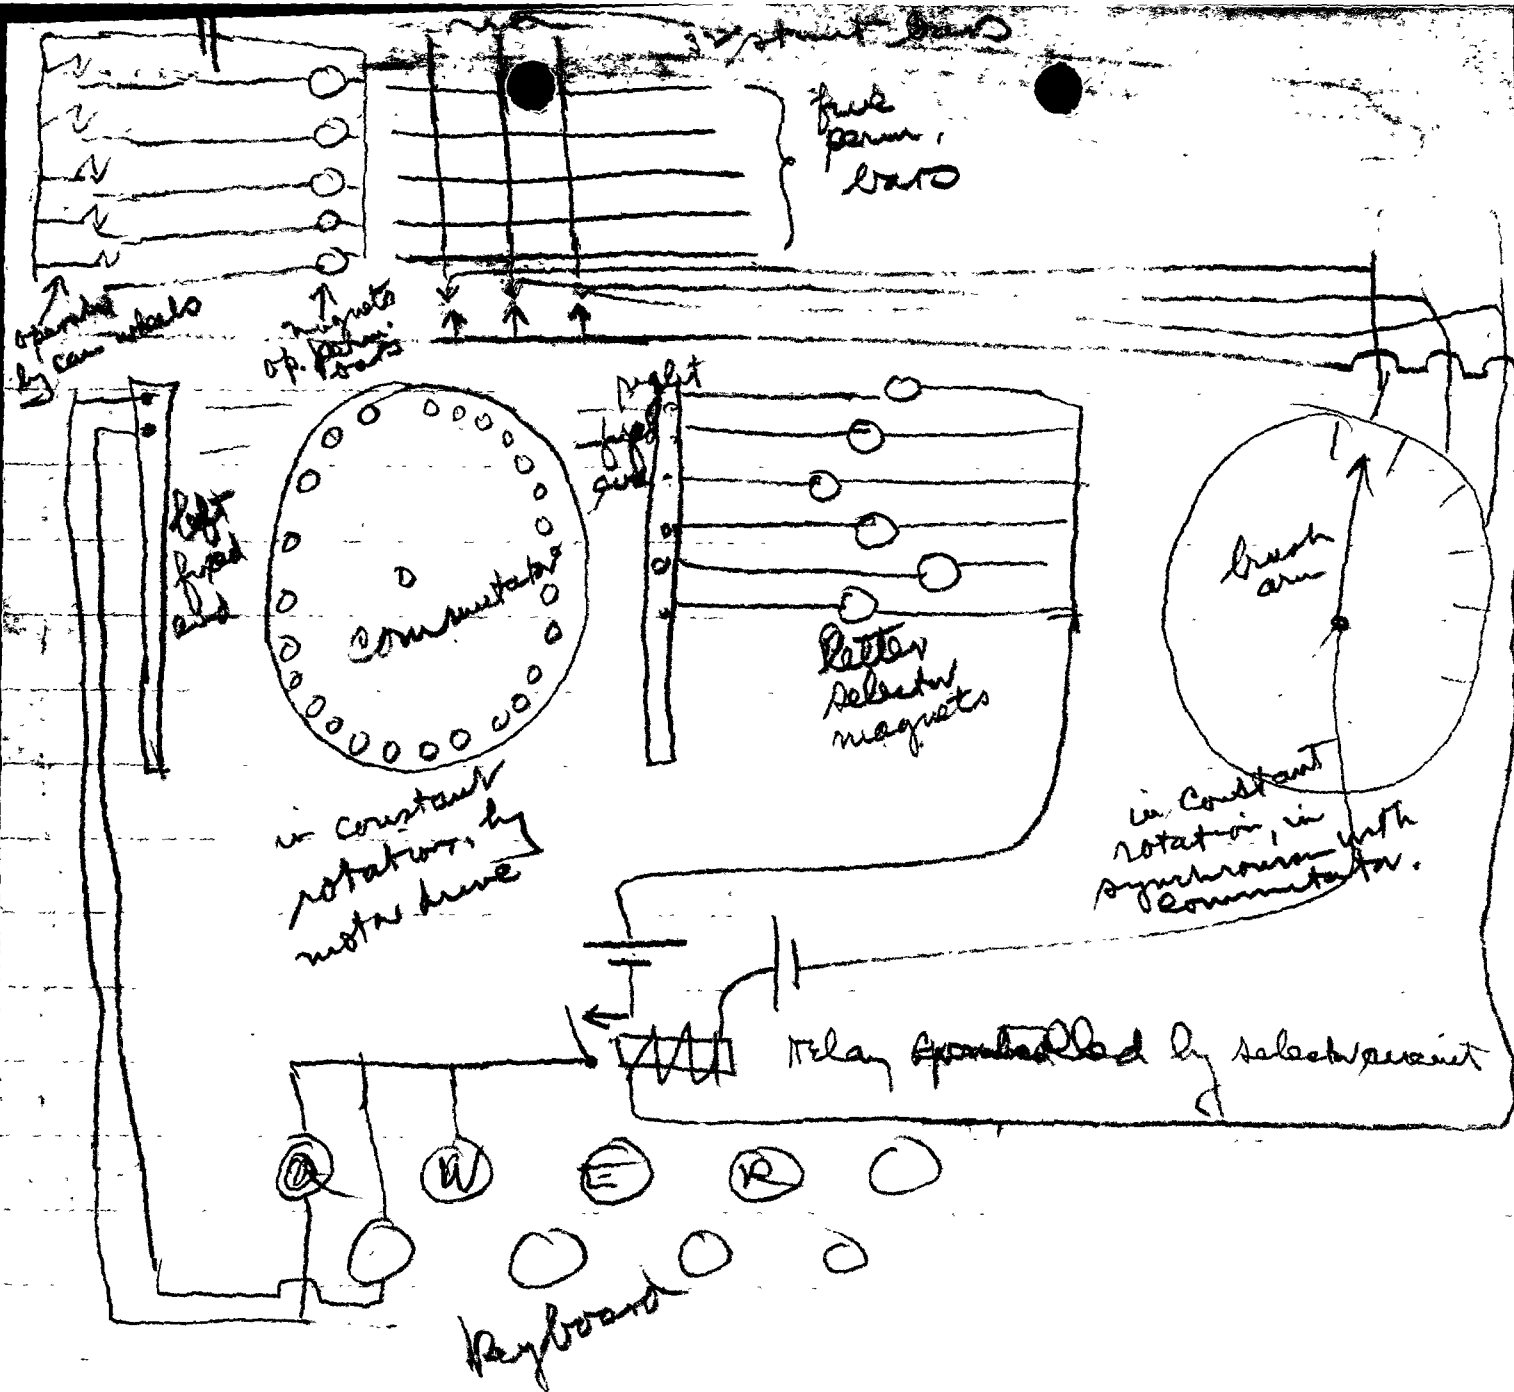 32 strut bars
five
perm.
bars
operated
by cam wheels
magnets
op. perm.
bars
right
fixed
end
left
fixed
end
commutator
brush
arm
letter
selector
magnets
in constant
rotation, by
motor drive
in constant
rotation, in
synchronism with
commutator.
relay controlled by selector circuit
Q W E R
Keyboard